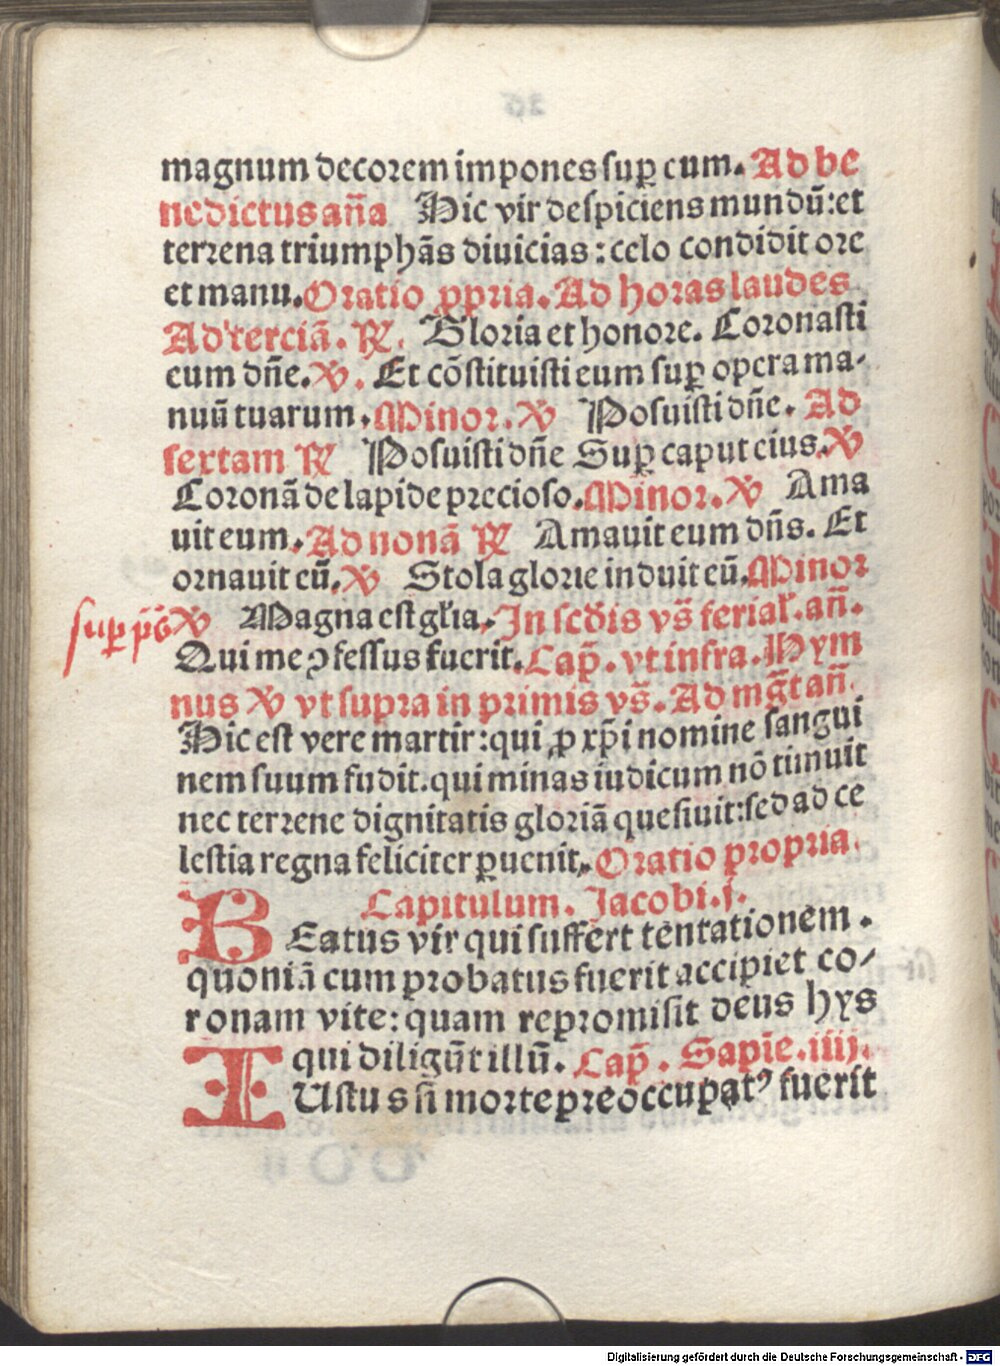 magnum decorem impones sup̲ eum. Ad be
nedictus an̄a Hic vir despiciens mundū: et
terrena triumphās diuicias: celo condidit ore
et manu. Oratio ꝓpria. Ad horas laudes
Ad terciā. ℟. Gloria et honore. Coronasti
eum dn̄e. ℣. Et cōstituisti eum suꝑ opera ma-
nuū tuarum. Minor. ℣ Posuisti dn̄e. Ad
sextam ℟ Posuisti dn̄e Suꝑ caput eius. ℣
Coronā de lapide precioso. Minor. ℣ Ama
uit eum. Ad nonā ℟ Amauit eum dn̄s. Et
ornauit eū. ℣ Stola glorie induit eū. Minor
℣ Magna est gl̄ia. In scd̄is vs̄ ferial'. an̄.
Qui me ꝯfessus fuerit. Cap̄. vt infra. Hym
nus ℣ vt supra in primis vs̄. Ad mḡt an̄
Hic est vere martir: qui ꝓ xp̄i nomine sangui
nem suum fudit. qui minas iudicum nō timuit
nec terrene dignitatis gloriā quesiuit: sed ad ce
lestia regna feliciter ꝑuenit. Oratio propria.
Capitulum. Jacobi. j.
BEatus vir qui suffert tentationem.
quoniā cum probatus fuerit accipiet co-
ronam vite: quam repromisit deus hys
qui diligūt illū. Cap̄. Sapie. iiij.
IUstus si morte preoccupatꝰ fuerit
Digitalisierung gefördert durch die Deutsche Forschungsgemeinschaft - DFG